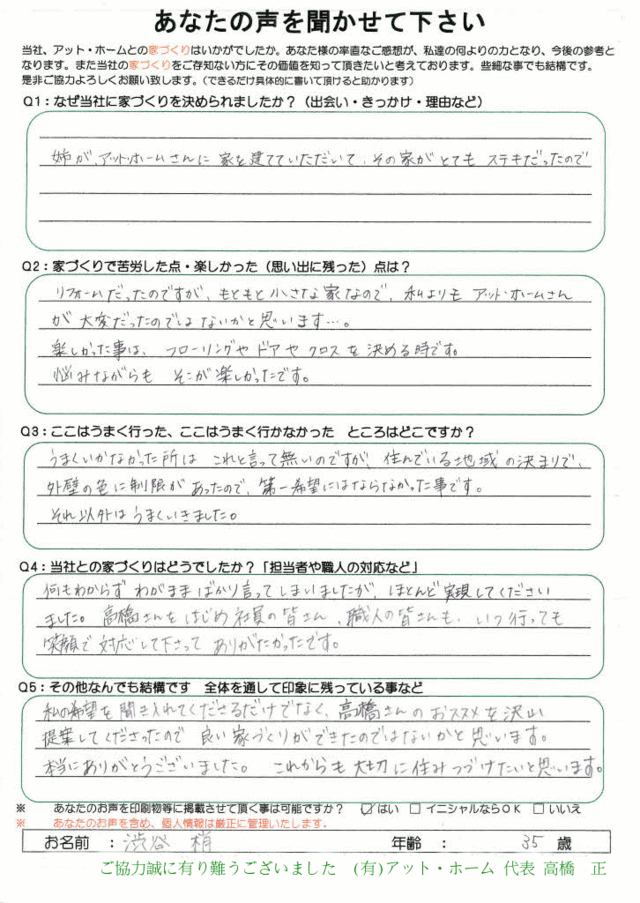 あなたの声を聞かせて下さい
当社、アット・ホームとの家づくりはいかがでしたか。あなた様の率直なご感想が、私達の何よりの力となり、今後の参考と
なります。また当社の家づくりをご存知ない方にその価値を知って頂きたいと考えております。些細な事でも結構です。
是非ご協力よろしくお願い致します。（できるだけ具体的に書いて頂けると助かります）
Q1：なぜ当社に家づくりを決められましたか？（出会い・きっかけ・理由など）
姉が、アットホームさんに 家を建てていただいて、その家がとても ステキだったので
Q2：家づくりで苦労した点・楽しかった（思い出に残った）点は？
リフォームだったのですが、もともと小さな家なので、私よりも アット・ホームさん
が 大変だったのではないかと思います…。
楽しかった事は、フローリングや ドアや クロスを決める時です。
悩みながらも そこが楽しかったです。
Q3：ここはうまく行った、ここはうまく行かなかった ところはどこですか？
うまくいかなかった所は これと言って無いのですが、住んでいる地域の決まりで、
外壁の色に制限があったので、第一希望にはならなかった事です。
それ以外はうまくいきました。
Q4：当社との家づくりはどうでしたか？「担当者や職人の対応など」
何もわからず わがままばかり言ってしまいましたが、ほとんど実現してください
ました。高橋さんをはじめ社員の皆さん、職人の皆さんも、いつ行っても
笑顔で対応して下さって ありがたかったです。
Q5：その他なんでも結構です 全体を通して印象に残っている事など
私の希望を聞き入れてくださるだけでなく、高橋さんのおススメを沢山
提案してくださったので 良い家づくりができたのではないかと思います。
本当にありがとうございました。 これからも大切に住みつづけたいと思います。
※ あなたのお声を印刷物等に掲載させて頂く事は可能ですか？ ☑はい □イニシャルならOK □いいえ
※ あなたのお声を含め、個人情報は厳正に管理いたします。
お名前 ： 渋谷 梢 年齢 ： 35 歳
ご協力誠に有り難うございました (有)アット・ホーム 代表 高橋 正